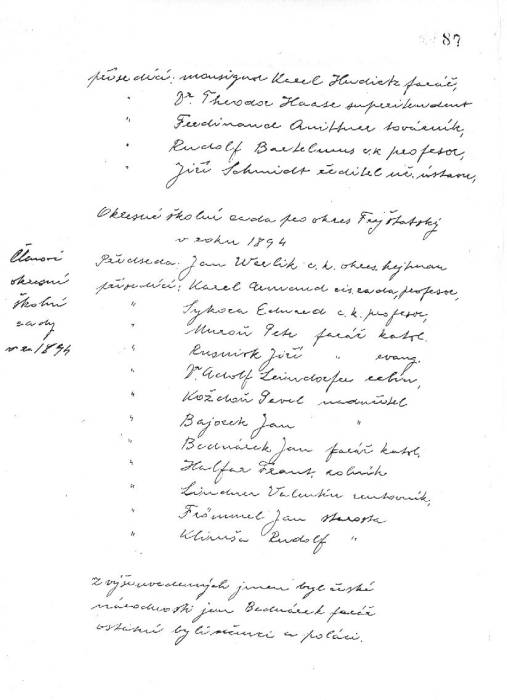 87
přísedící: monsignor Karel Hudietz farář,
" Dr Theodor Haase superitendent
" Ferdinand továrník,
" Rudolf Bartelmus c.k profesor,
" Jiří Schmidt ředitel uč. ústavu,
Okresní školní rada pro okres Frýštatský
v roku 1894
Členové
okresní
školní
rady
v r. 1894
Předseda: Jan c. k. okres. hejtman
přísedící: Karel cís. rada, profesor,
" Sykora Eduard c. k. profesor,
" Muroň Petr farář katol.
" Jiří " evang.
" Dr Adolf rabín,
" Koždoň Pavel nadučitel
" Bajorek Jan "
" Bednárek Jan farář katol.
" Halfar Frant. rolník
" Lindner Valentin
" Frömmel Jan starosta
" Klimša Rudolf "
Z výšeuvedených jmen byl české
národnosti jen Bednárek farář
ostatní byli němci a poláci.